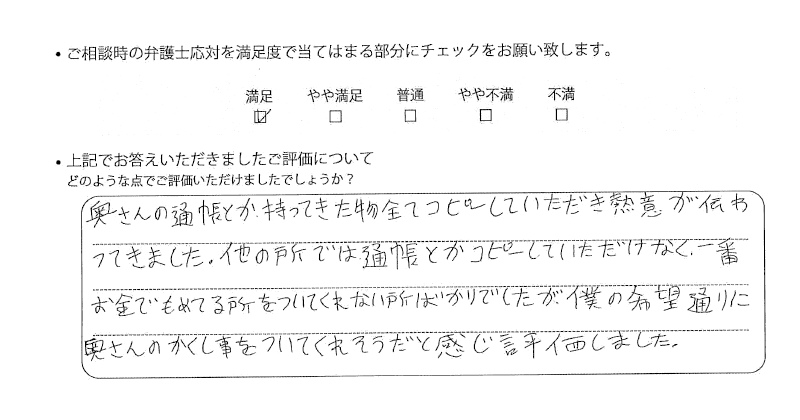 ・ご相談時の弁護士応対を満足度で当てはまる部分にチェックをお願い致します。
満足 やや満足 普通 やや不満 不満
・上記でお答えいただきましたご評価について
どのような点でご評価いただけましたでしょうか？
奥さんの通帳とか、持ってきた物全てコピーしていただき熱意が伝わ
ってきました。他の所では通帳とかコピーしていただけなく、一番
お金でもめてる所をついてくれない所ばかりでしたが僕の希望通りに
奥さんのかくし事をついてくれそうだと感じ評価しました。